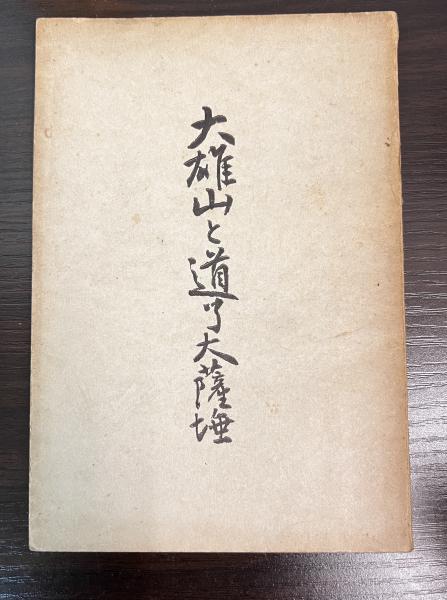 大雄山と道了大薩埵